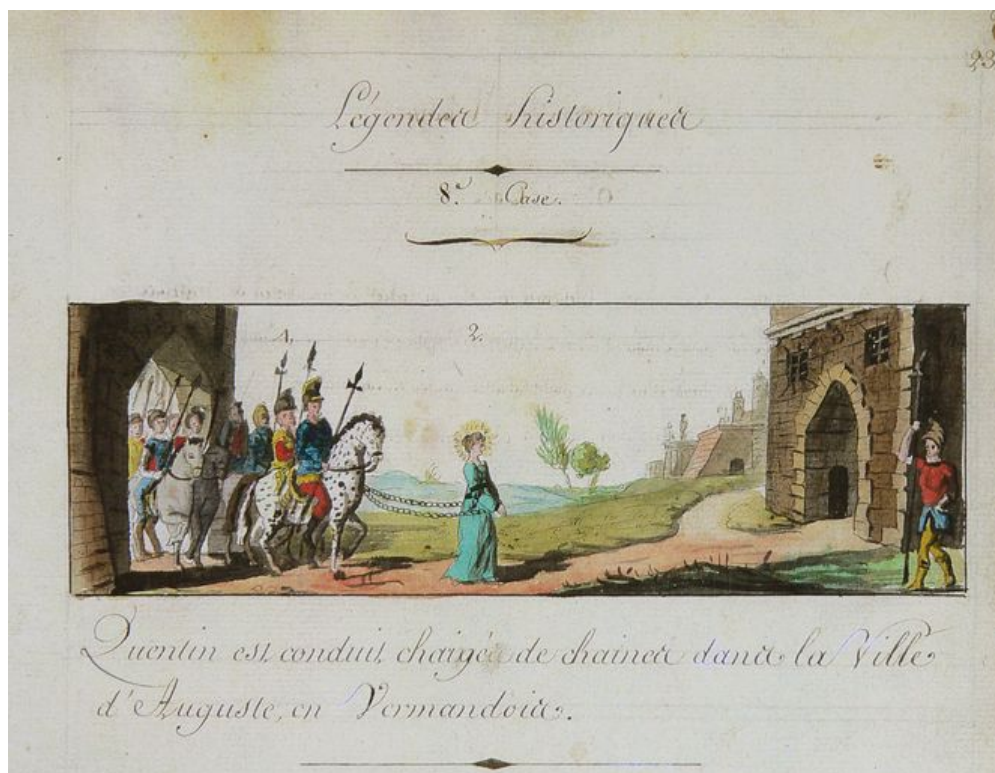 23
Légendes historiques
8.e Case.
1. 2. 3. 4.
Quentin est conduit chargé de chaines dans la Ville
d'Auguste, en Vermandois.